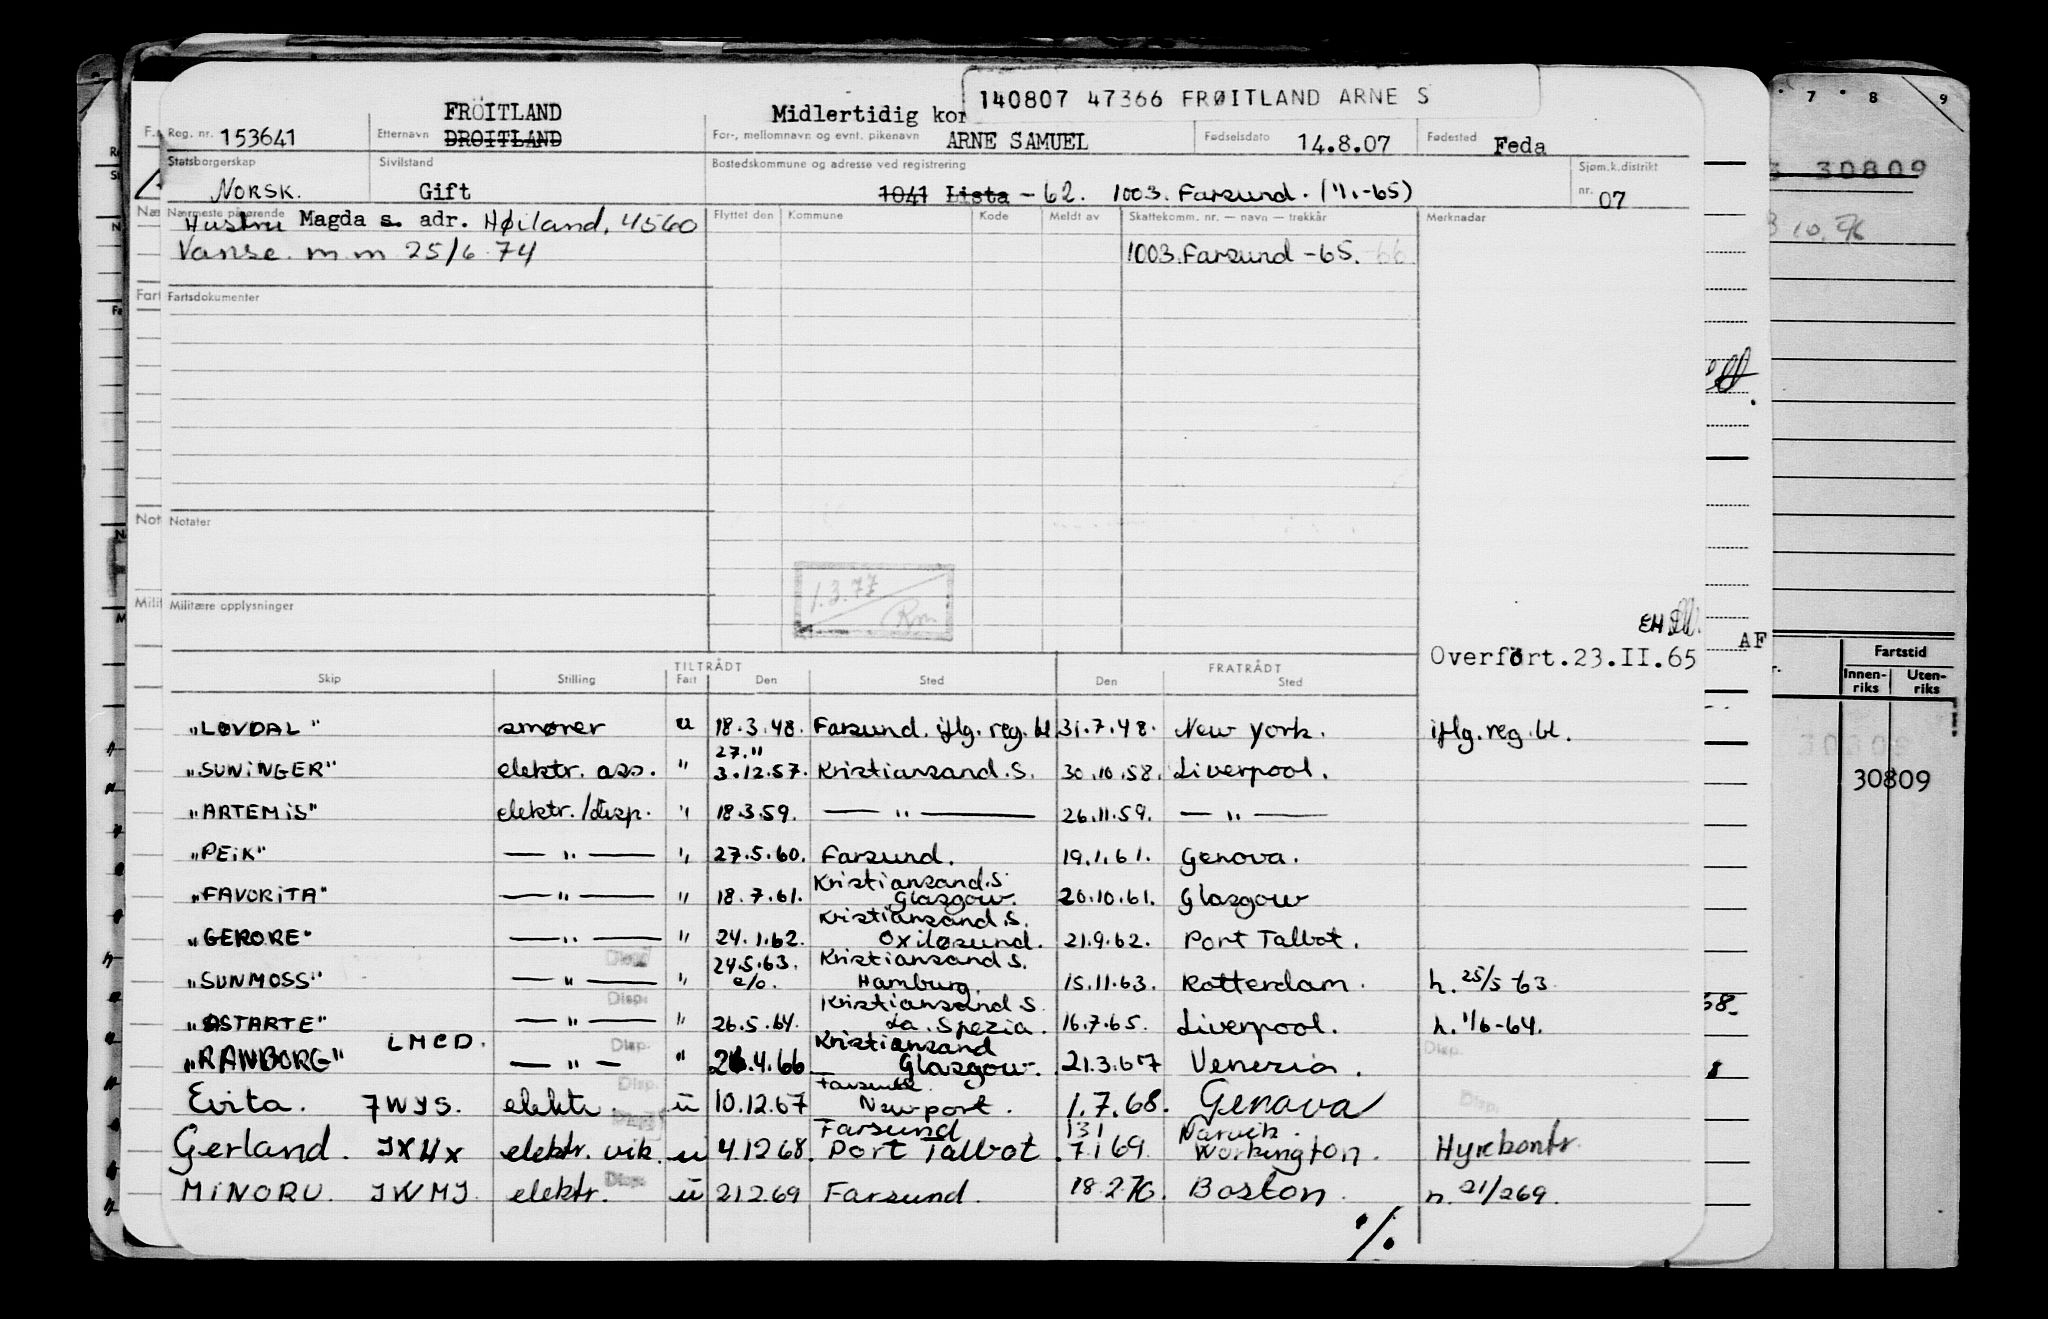 140807 47366 FRØITLAND ARNE S
FRÖITLAND
Midlertidig kor
Reg. nr. 153641 Etternavn DROITLAND For-, mellomnavn og evnt. pikenavn ARNE SAMUEL Fødselsdato 14.8.07 Fødested Feda
Statsborgerskap Sivilstand Bostedskommune og adresse ved registrering Sjøm.k.distrikt
NORSK. Gift 1041 Lista - 62. 1003. Farsund. (1/1-65) nr. 07
Nærmeste pårørende Flyttet den Kommune Kode Meldt av Skattekomm. nr. — navn — trekkår Merknader
Hustru Magda s. adr. Høiland, 4560
Vanse. m m 25/6 74 1003. Farsund -65. -66
Fartsdokumenter
Notater
1.3.77
Rm
Militære opplysninger
EH
Overført.23.II.65
AF
TILTRÅDT FRATRÅDT
Skip Stilling Fart Den Sted Den Sted
"LØVDAL" smører u 18.3.48. Farsund. iflg. reg. bl 31.7.48. New York. iflg. reg. bl.
27."
"SUNINGER" elektr. ass. " 3.12.57. Kristiansand. S. 30.10.58. Liverpool.
"ARTEMIS" elektr./disp. " 18.3.59. — " — 26.11.59. — " —
"PEIK" — " — " 27.5.60. Farsund. 19.1.61. Genova.
Kristiansand.S.
"FAVORITA" — " — " 18.7.61. Glasgow. 20.10.61. Glasgow
Kristiansand.S.
"GERORE" — " — " 24.1.62. Oxiløsund. 21.9.62. Port Talbot.
Disp. 24.5.63. Kristiansand S.
"SUNMOSS" — " — " e/o. Hamburg. 15.11.63. Rotterdam. h. 25/5-63
Disp. Kristiansand S.
"ASTARTE" — " — " 26.5.64. La. Spezia. 16.7.65. Liverpool. h. 1/6-64.
Disp. Kristiansand Disp.
"RANBORG" LMCD. — " — " 26.4.66 Glasgow. 21.3.67 Venezia.
Disp. Farsund.
Evita. 7WYS. elektr u 10.12.67 Newport. 1.7.68. Genova Disp.
Farsund 131 Narvik.
Gerland. JXHX elektr. vik. u 4.12 68. Port Talbot. 7 1 69 Workington. Hyrekontr.
MINORU. JWMJ. elektr. Disp. u 21 2 69 Farsund. 18 2 70. Boston. n. 21/2 69.
%
7 8 9
30809
10.76
Fartstid
Innen-
riks
Uten-
riks
30809
30809